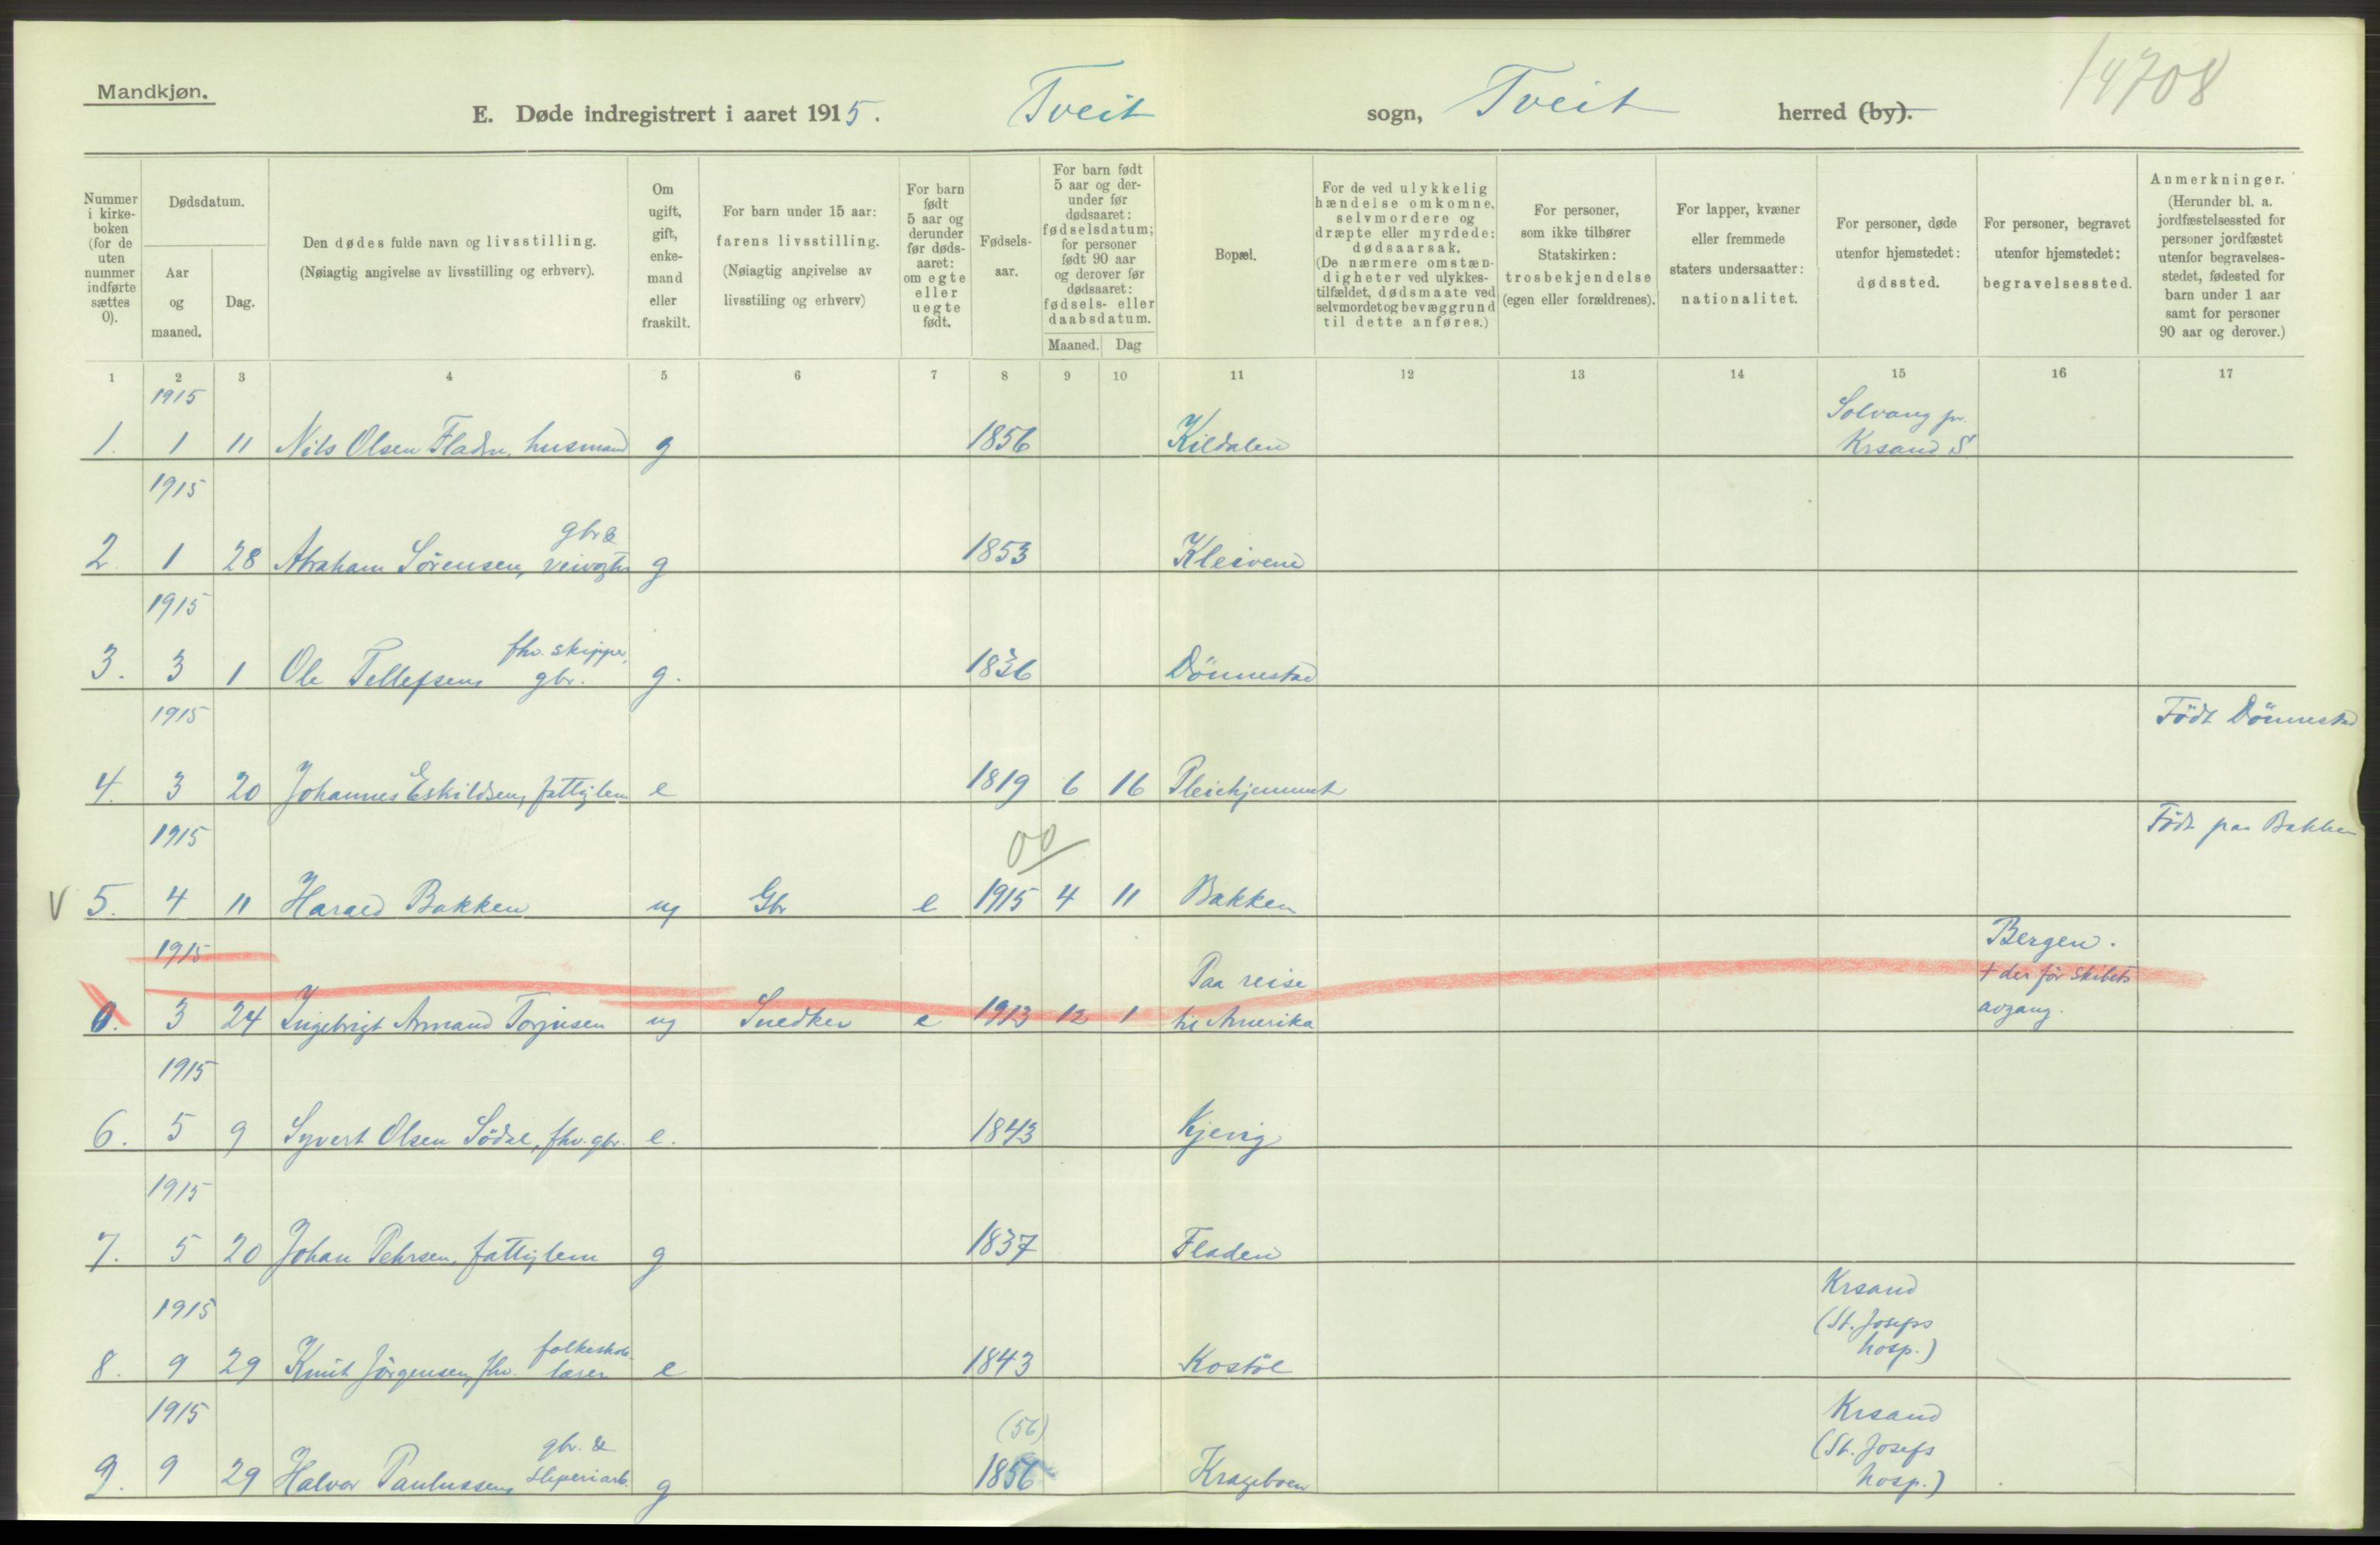 Mandkjøn.
14708
E. Døde indregistrert i aaret 1915. Tveit sogn, Tveit herred (by).
Nummer i kirke-boken (for de uten nummer indførte sættes 0).
Dødsdatum.
Aar og maaned.
Dag.
Den dødes fulde navn og livsstilling.
(Nøiagtig angivelse av livsstilling og erhverv).
Om ugift, gift, enke-mand eller fraskilt.
For barn under 15 aar:
farens livsstilling.
(Nøiagtig angivelse av
livsstiling og erhverv)
For barn født 5 aar og derunder før døds-aaret: om egte eller uegte født.
Fødsels-aar.
For barn født 5 aar og der-under før dødsaaret: fødselsdatum; for personer født 90 aar og derover før dødsaaret: fødsels- eller daabsdatum.
Maaned. Dag
Bopæl.
For de ved ulykkelig hændelse omkomne, selvmordere og dræpte eller myrdede: dødsaarsak.
(De nærmere omstæn-digheter ved ulykkes-tilfældet, dødsmaate ved selvmordet og bevæggrund til dette anføres.)
For personer, som ikke tilhører Statskirken: trosbekjendelse (egen eller forældrenes).
For lapper, kvæner eller fremmede staters undersaatter: nationalitet.
For personer, døde utenfor hjemstedet: dødssted.
For personer, begravet utenfor hjemstedet: begravelsessted.
Anmerkninger.
(Herunder bl. a. jordfæstelsessted for personer jordfæstet utenfor begravelses-stedet, fødested for barn under 1 aar samt for personer 90 aar og derover.)
1 2 3 4 5 6 7 8 9 10 11 12 13 14 15 16 17
1915 Solvang pr.
1. 1 11 Nils Olsen Fladen, husmand g 1856 Kildalen Krsand S
1915
gbr &
2 1 28 Abraham Sörensen, veivogter g 1853 Kleivene
1915
fhv. skipper,
3. 3 1 Ole Tellefsen gbr. g. 1836 Dönnestad
1915 Födt Dönnestad
4. 3 20 Johannes Eskildsen, fattiglem e 1819 6 16 Pleiehjemmet
1915 00 Födt paa Bakken
V 5. 4 11 Harald Bakken ug Gbr e 1915 4 11 Bakken
1915 Bergen.
Paa reise + der för skibets
0. 3 24 Ingebrigt Armand Torjusen ug Snedker e 1913 12 1 til Amerika avgang.
1915
6. 5 9 Syvert Olsen Södal, fhv. gbr. e. 1843 Kjevig
1915
7. 5 20 Johan Pehrsen, fattiglem g 1837 Fladen
1915 Krsand
folkeskole (St. Josefs
8. 9 29 Knut Jörgensen, fhv. lærer e 1843 Kostöl hosp.)
1915 (56) Krsand
gbr. & (St. Josefs
9. 9 29 Halvor Paulussen, sliperiarb. g 1856 Krageboen hosp.)